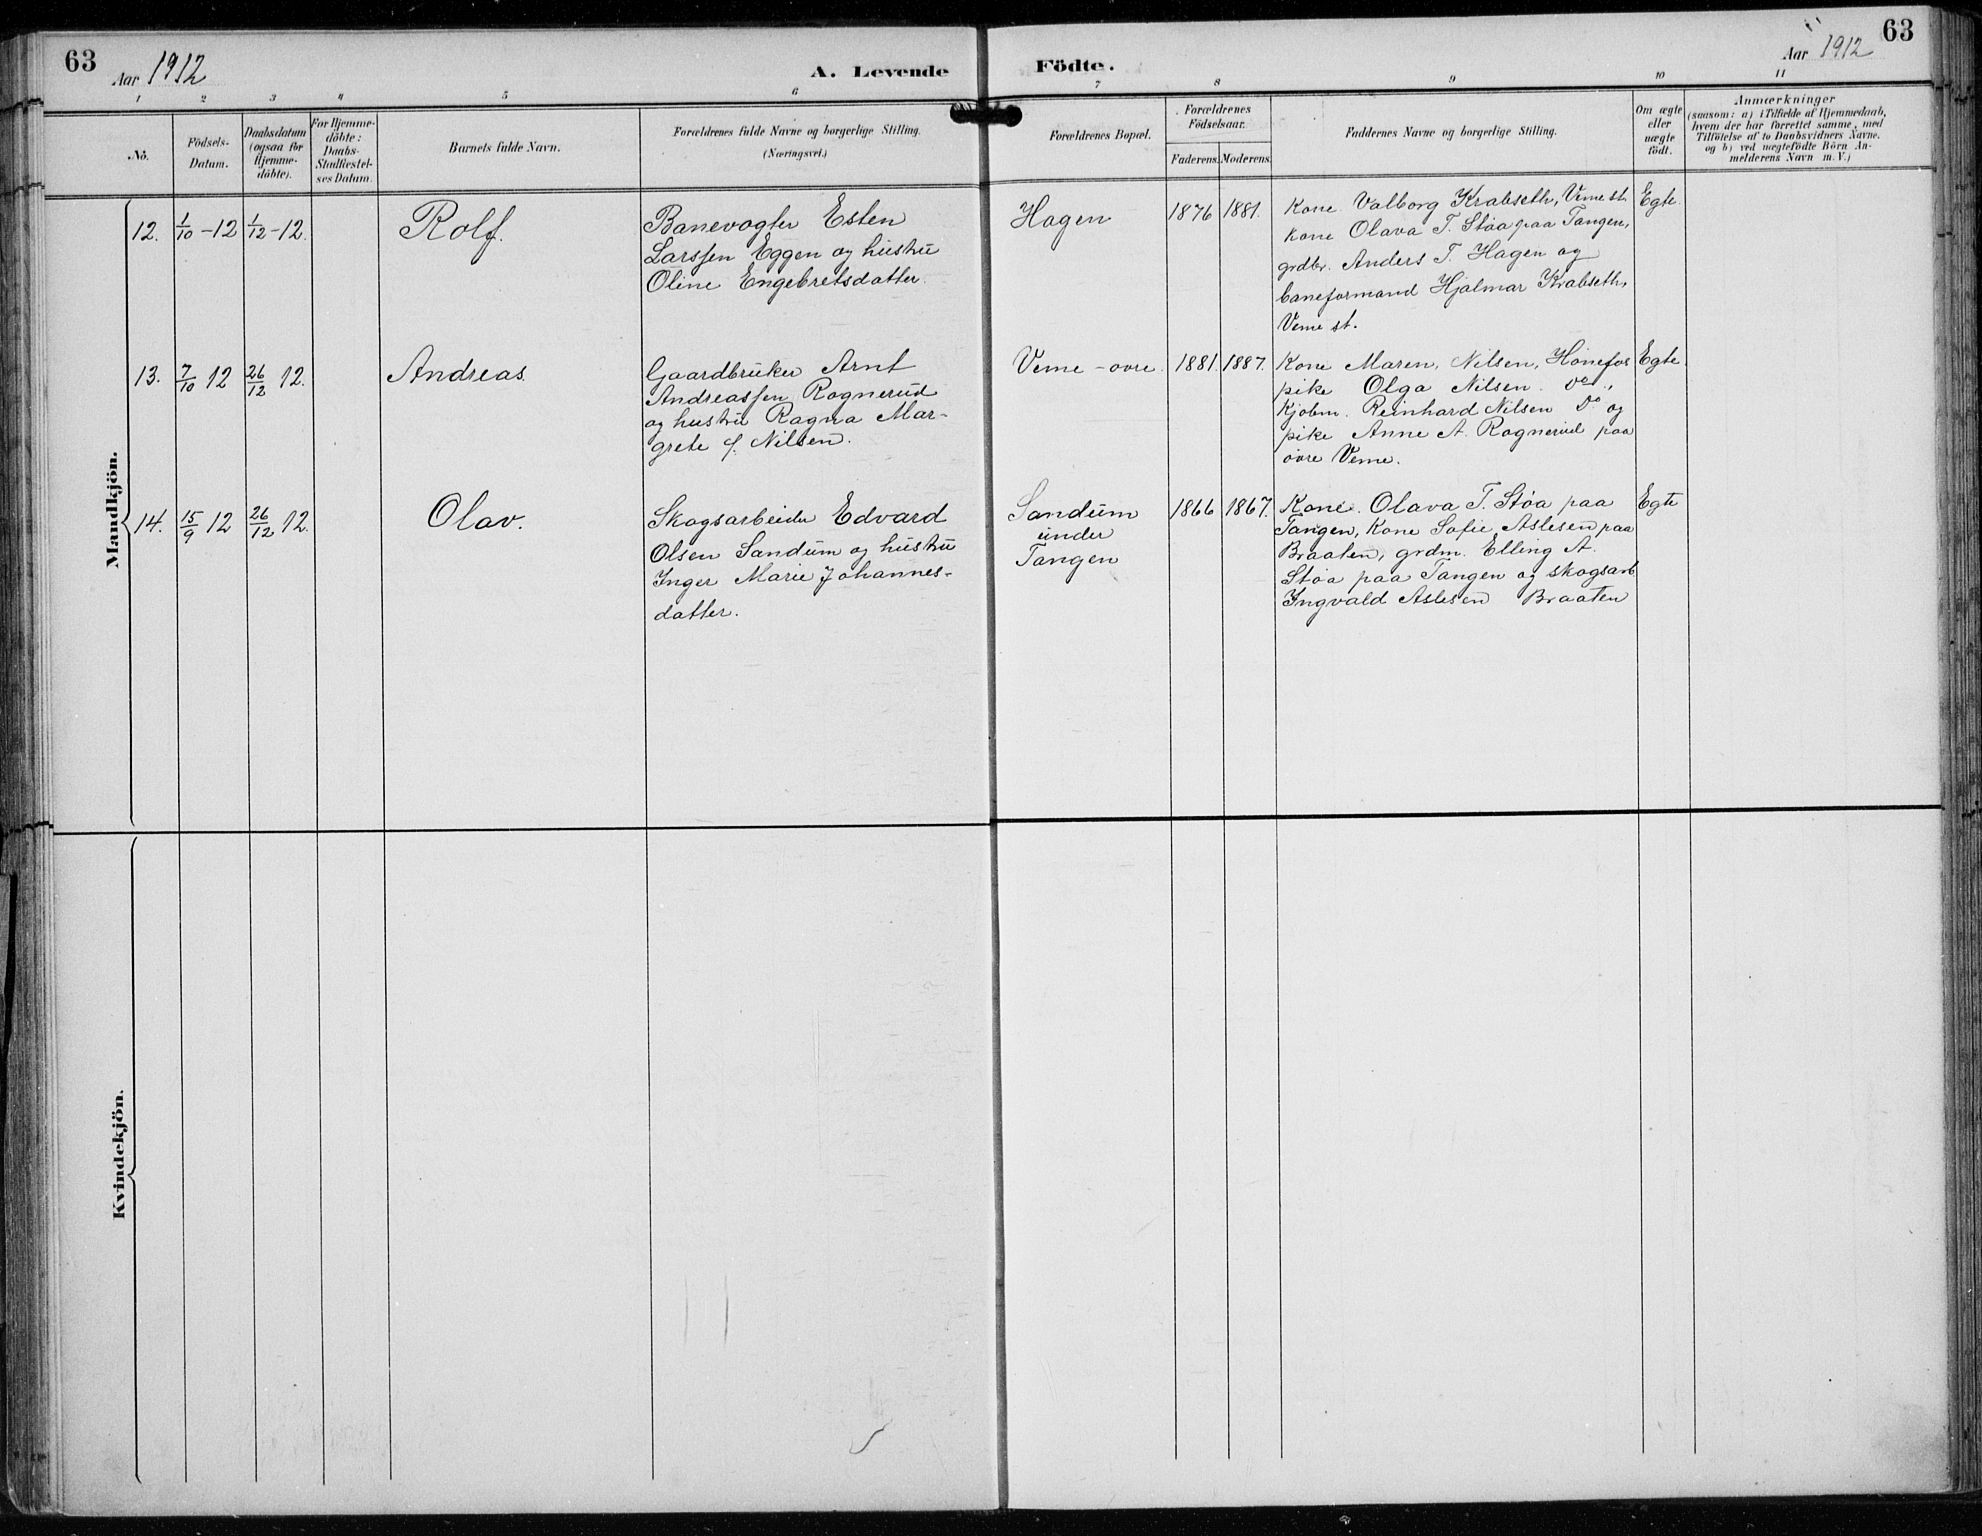 63
Aar 1912
A. Levende
Födte.
Aar 1912
63
1 2 3 4 5 6 7 8 9 10 11
No.
Födsels-
Datum.
Daabsdatum
(ogsaa for
Hjemme-
döbte).
For Hjemme-
döbte:
Daabs-
Stadfæstel-
ses Datum.
Barnets fulde Navn.
Forældrenes fulde Navne og borgerlige Stilling.
(Næringsvei.)
Forældrenes Bopæl.
Forældrenes
Födselsaar.
Faderens. Moderens.
Faddernes Navne og borgerlige Stilling.
Om ægte
eller
uægte
födt.
Anmærkninger
(saasom: a) i Tilfælde af Hjemmedaab,
hvem der har forrettet samme, med
Tilföielse af to Daabsvidners Navne.
og b) ved uægtefödte Börn An-
melderens Navn m. V.)
Mandkjön.
12. 1/10 - 12 1/12 - 12. Rolf.
Banevogter Esten
Larssen Eggen og hustru
Oline Engebretsdatter.
Hagen
1876 1881.
Kone Valborg Krabseth, Veme st.
Kone Olava T. Støa paa Tangen,
grdbr. Anders T. Hagen og
baneformand Hjalmar Krabseth,
Veme st.
Egte.
13. 7/10 12 26/12 12. Andreas.
Gaardbruker Arnt
Andreassen Rognerud
og hustru Ragna Mar-
grete f. Nilsen.
Veme - øvre.
1881. 1887.
Kone Maren Nilsen, Hönefos
pike Olga Nilsen. Do.,
Kjöbm. Reinhard Nilsen Do. og
pike Anne A. Rognerud paa
övre Veme.
Egte.
14. 15/9 12 26/12 12. Olav.
Skogsarbeider Edvard
Olsen Sandum og hustru
Inger Marie Johannes-
datter.
Sandum
under
Tangen
1866 1867.
Kone. Olava T. Støa paa
Tangen, Kone Sofie Aslesen paa
Braaten, grdm. Elling A.
Støa paa Tangen og skogsarb.
Ingvald Aslesen Braaten
Egte
Kvindekjön.